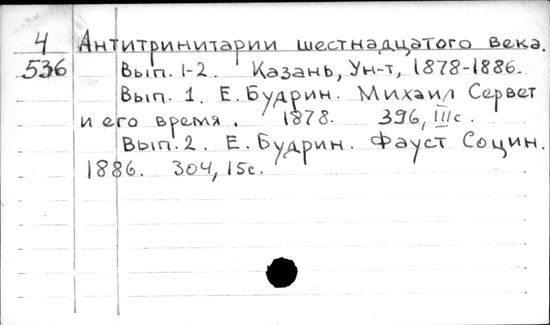 4 Антитринитарии шестнадцатого века.
536 Вып. 1-2. Казань, Ун-т, 1878-1886.
Вып. 1. Е. Будрин. Михаил Сервет
и его время. 1878. 396, IIIс.
Вып. 2. Е. Будрин. Фауст Социн.
1886. 304, 15с.